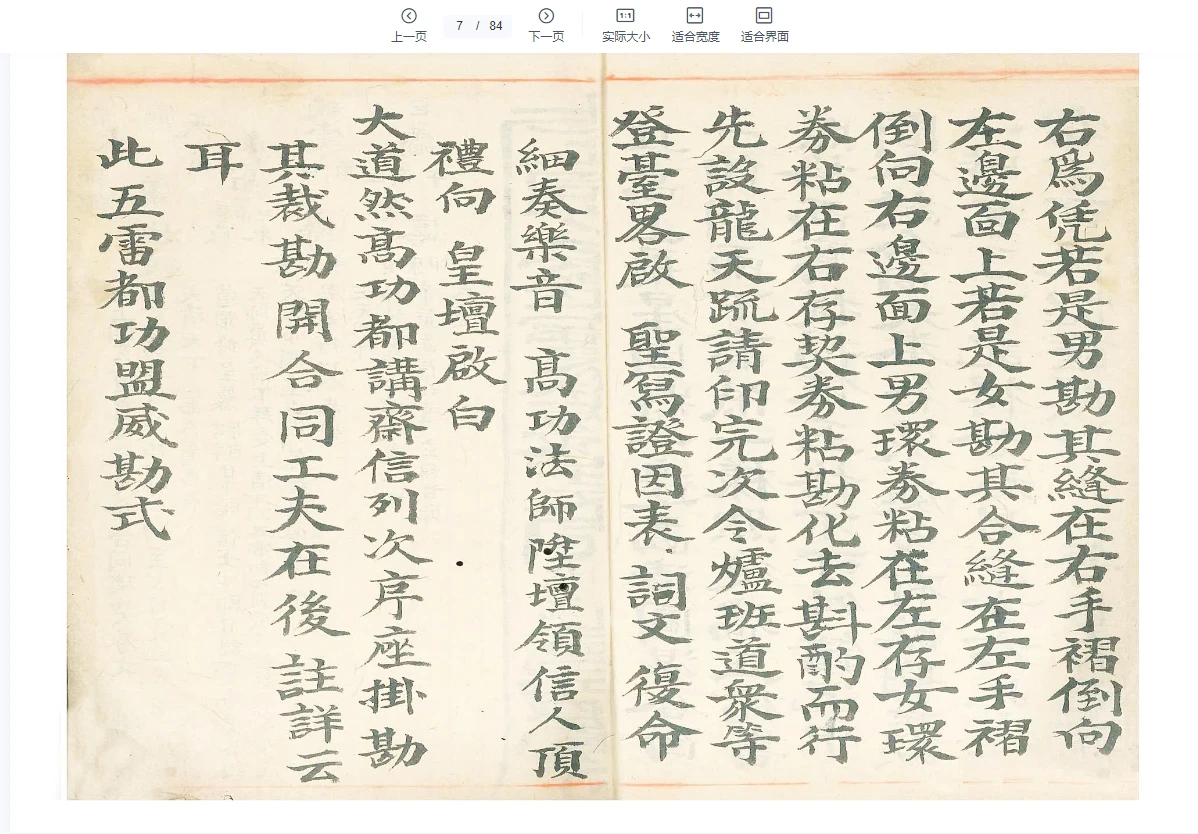 上一页
7 / 84
下一页
1:1
实际大小
适合宽度
适合界面
右爲凭若是男勘其縫在右手褶倒向
左邊面上若是女勘其合縫在左手褶
倒向右邊面上男環券粘在左存女環
券粘在右存契券粘勘化去斟酌而行
先設龍天疏請印完次令爐班道衆等
登臺畧啟 聖寫證因表 詞文 復命
細奏樂音 高功法師陞壇領信人頂
禮向 皇壇啟白
大道然高功都講齋信列次序座掛勘
其裁勘開合同工夫在後註詳云
耳
此五雷都功盟威勘式